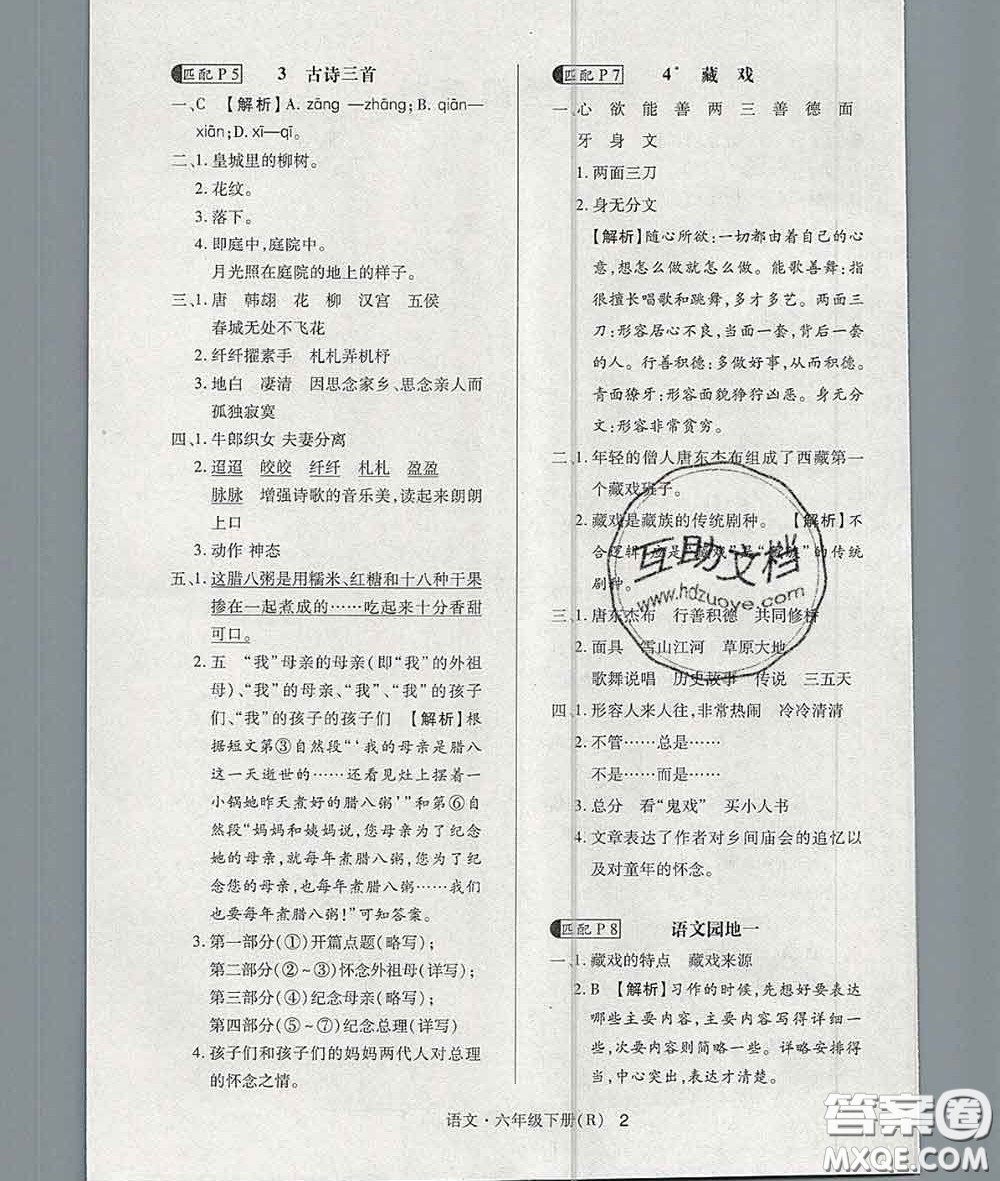 匹配P5 3 古诗三首
一、C 【解析】A. zāng —zhāng;B. qiān—
xiān;D. xī—qī。
二、1. 皇城里的柳树。
2. 花纹。
3. 落下。
4. 即庭中,庭院中。
月光照在庭院的地上的样子。
三、1. 唐 韩翃 花 柳 汉宫 五侯
春城无处不飞花
2. 纤纤擢素手 札札弄机杼
3. 地白 凄清 因思念家乡、思念亲人而
孤独寂寞
四、1. 牛郎织女 夫妻分离
2. 迢迢 皎皎 纤纤 札札 盈盈
脉脉 增强诗歌的音乐美,读起来朗朗
上口
3. 动作 神态
五、1. 这腊八粥是用糯米、红糖和十八种干果
掺在一起煮成的……吃起来十分香甜
可口。
2. 五 “我”母亲的母亲(即“我”的外祖
母)、“我”的母亲、“我”、“我”的孩子
们、“我”的孩子的孩子们 【解析】根
据短文第③自然段“‘我的母亲是腊八
这一天逝世的……还看见灶上摆着一
小锅她昨天煮好的腊八粥’”和第⑥自
然段“妈妈和姨妈说,您母亲为了纪念
她的母亲,就每年煮腊八粥,您为了纪
念您的母亲,也每年煮腊八粥……我们
也要每年煮腊八粥!”可知答案。
3. 第一部分(①)开篇点题(略写);
第二部分(②~③)怀念外祖母(详写);
第三部分(④)纪念母亲(略写);
第四部分(⑤~⑦)纪念总理(详写)
4. 孩子们和孩子们的妈妈两代人对总理
的怀念之情。
匹配P7 4* 藏戏
一、心 欲 能 善 两 三 善 德 面
牙 身 文
1. 两面三刀
2. 身无分文
【解析】随心所欲:一切都由着自己的心
意,想怎么做就怎么做。能歌善舞:指
很擅长唱歌和跳舞,多才多艺。两面三
刀:形容居心不良,当面一套,背后一套
的人。行善积德:多做好事,从而积德。
青面獠牙:形容面貌狰狞凶恶。身无分
文:形容非常贫穷。
二、1. 年轻的僧人唐东杰布组成了西藏第一
个藏戏班子。
2. 藏戏是藏族的传统剧种。 【解析】不
合逻辑,应是“藏戏”是“藏族”的传统
剧种。
三、1. 唐东杰布 行善积德 共同修桥
2. 面具 雪山江河 草原大地
歌舞说唱 历史故事 传说 三五天
四、1. 形容人来人往,非常热闹 冷冷清清
2. 不管……总是……
不是……而是……
3. 总分 看“鬼戏” 买小人书
4. 文章表达了作者对乡间庙会的追忆以
及对童年的怀念。
匹配P8 语文园地一
一、1. 藏戏的特点 藏戏来源
2. B 【解析】习作的时候,先想好要表达
哪些主要内容,主要内容写得详细一
些,次要内容则简略一些。详略安排得
当,中心突出,表达才清楚。
语文·六年级下册(R) 2
互助文档
www.hdzuoye.com
答案圈
MXQE.COM